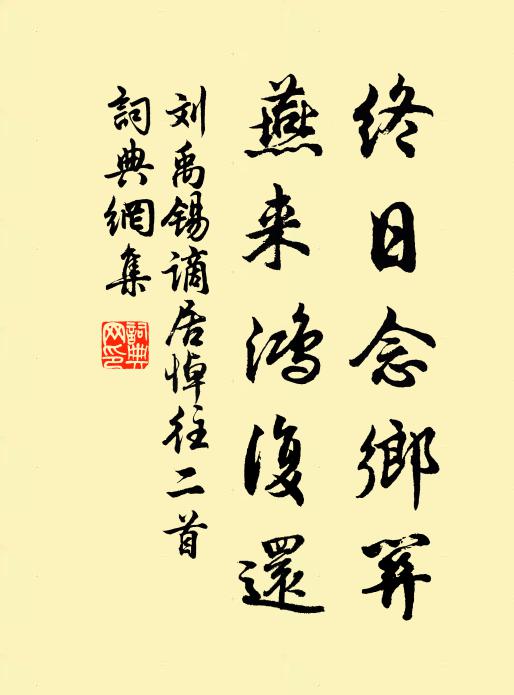 終日念鄉關
燕来鴻復還
刘禹锡謫居悼往二首
詞典網集
詞典網印